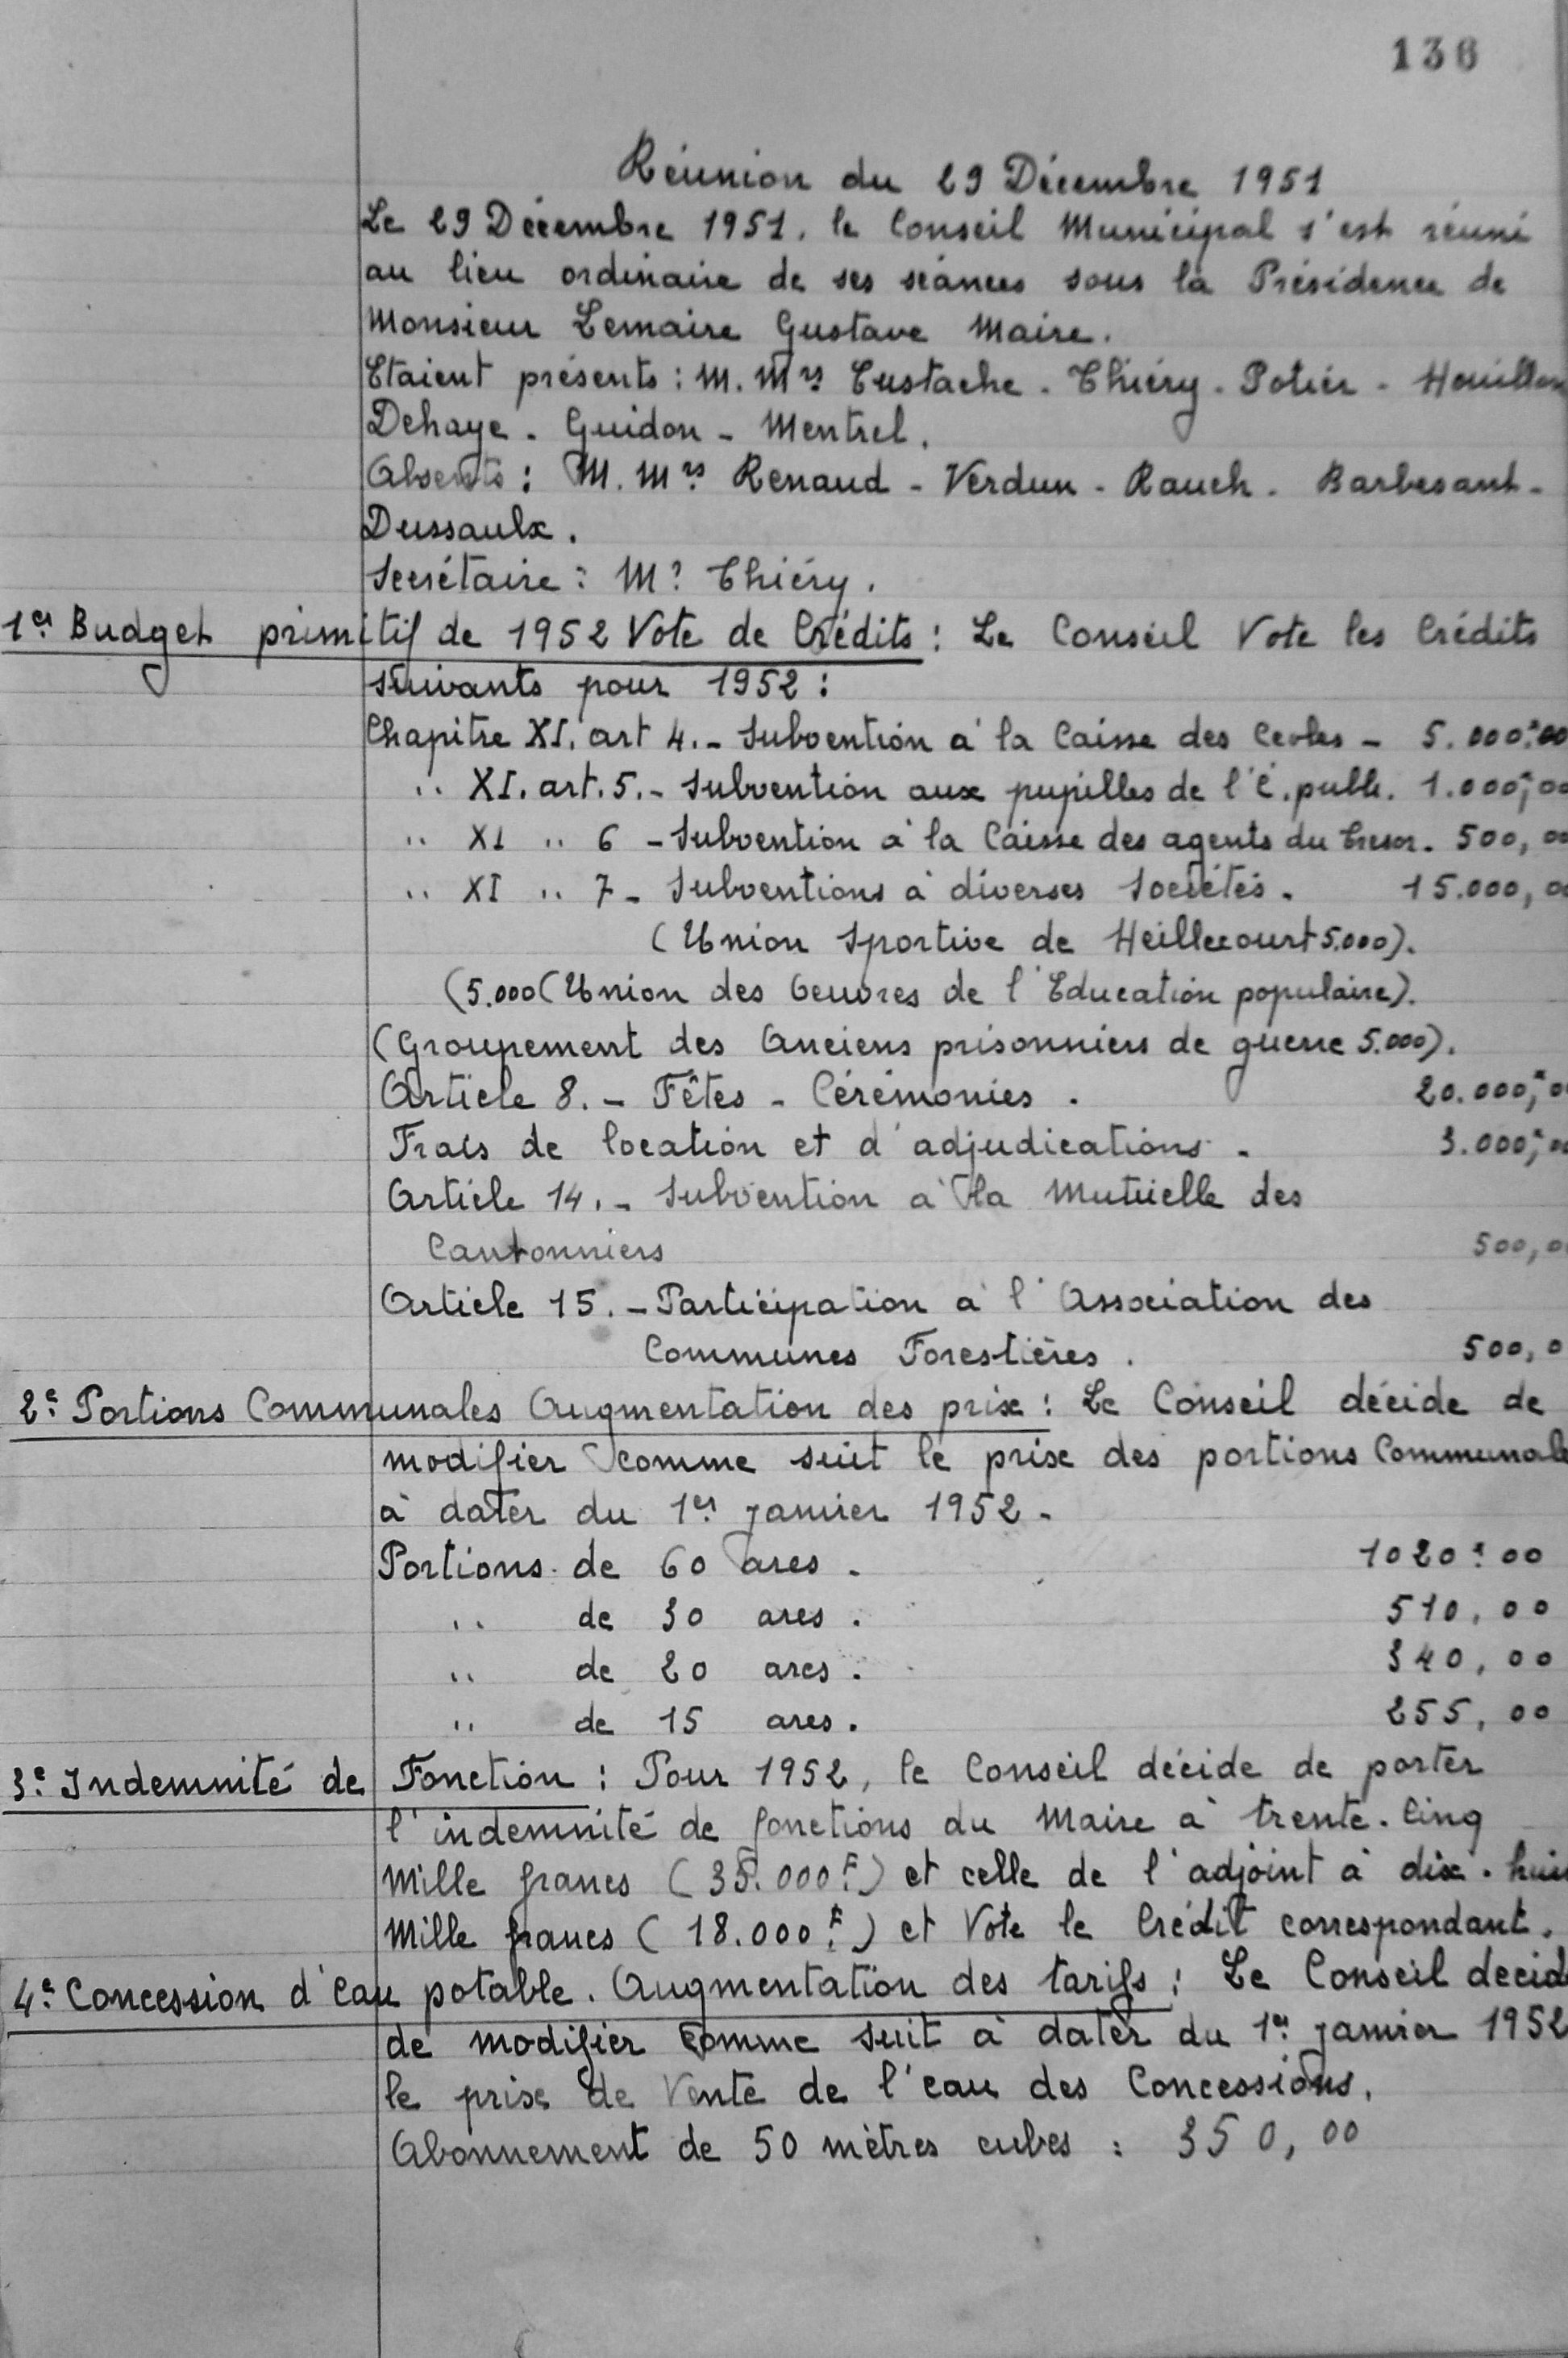 136
Réunion du 29 Décembre 1951
Le 29 Décembre 1951, le Conseil Municipal s'est réuni
au lieu ordinaire de ses séances sous la Présidence de
Monsieur Lemaire Gustave Maire.
Etaient présents : M. Mrs Eustache - Thiéry - Potier - Houillon
Dehaye - Guidon - Mentrel.
Absents : M. Mrs Renaud - Verdun - Rauch - Barbesant -
Dussaulx.
Secrétaire : Mr Thiéry.
1er Budget primitif de 1952 Vote de Crédits : Le Conseil Vote les Crédits
suivants pour 1952 :
Chapitre XI. art 4. - Subvention à la Caisse des Ecoles - 5.000F00
" XI. art. 5. - Subvention aux pupilles de l'E. publ. 1.000,00
" XI " 6 - Subvention à la Caisse des agents du Tresor. 500,00
" XI " 7 - Subventions à diverses Sociétés. 15.000,00
(Union Sportive de Heillecourt 5.000).
(5.000 (Union des Oeuvres de l'Education populaire).
(Groupement des Anciens prisonniers de guerre 5.000).
Article 8. - Fêtes - Cérémonies. 20.000,00
Frais de location et d'adjudications. 3.000,00
Article 14. - Subvention à la Mutuelle des
Cantonniers 500,0
Article 15. - Participation à l'Association des
Communes Forestières. 500,0
2e Portions Communales Augmentation des prix : Le Conseil décide de
modifier comme suit le prix des portions Communale
à dater du 1er janvier 1952.
Portions de 60 ares. 1020F00
" de 30 ares. 510,00
" de 20 ares. 340,00
" de 15 ares. 255,00
3e Indemnité de Fonction : Pour 1952, le Conseil décide de porter
l'indemnité de fonctions du Maire à trente-Cinq
Mille francs (35.000F) et celle de l'adjoint à dix-hui
Mille francs (18.000F) et Vote le Crédit correspondant.
4e Concession d'eau potable. Augmentation des tarifs : Le Conseil decid
de modifier comme suit à dater du 1er janvier 1952
le prix de Vente de l'eau des Concessions.
Abonnement de 50 mètres cubes : 350,00